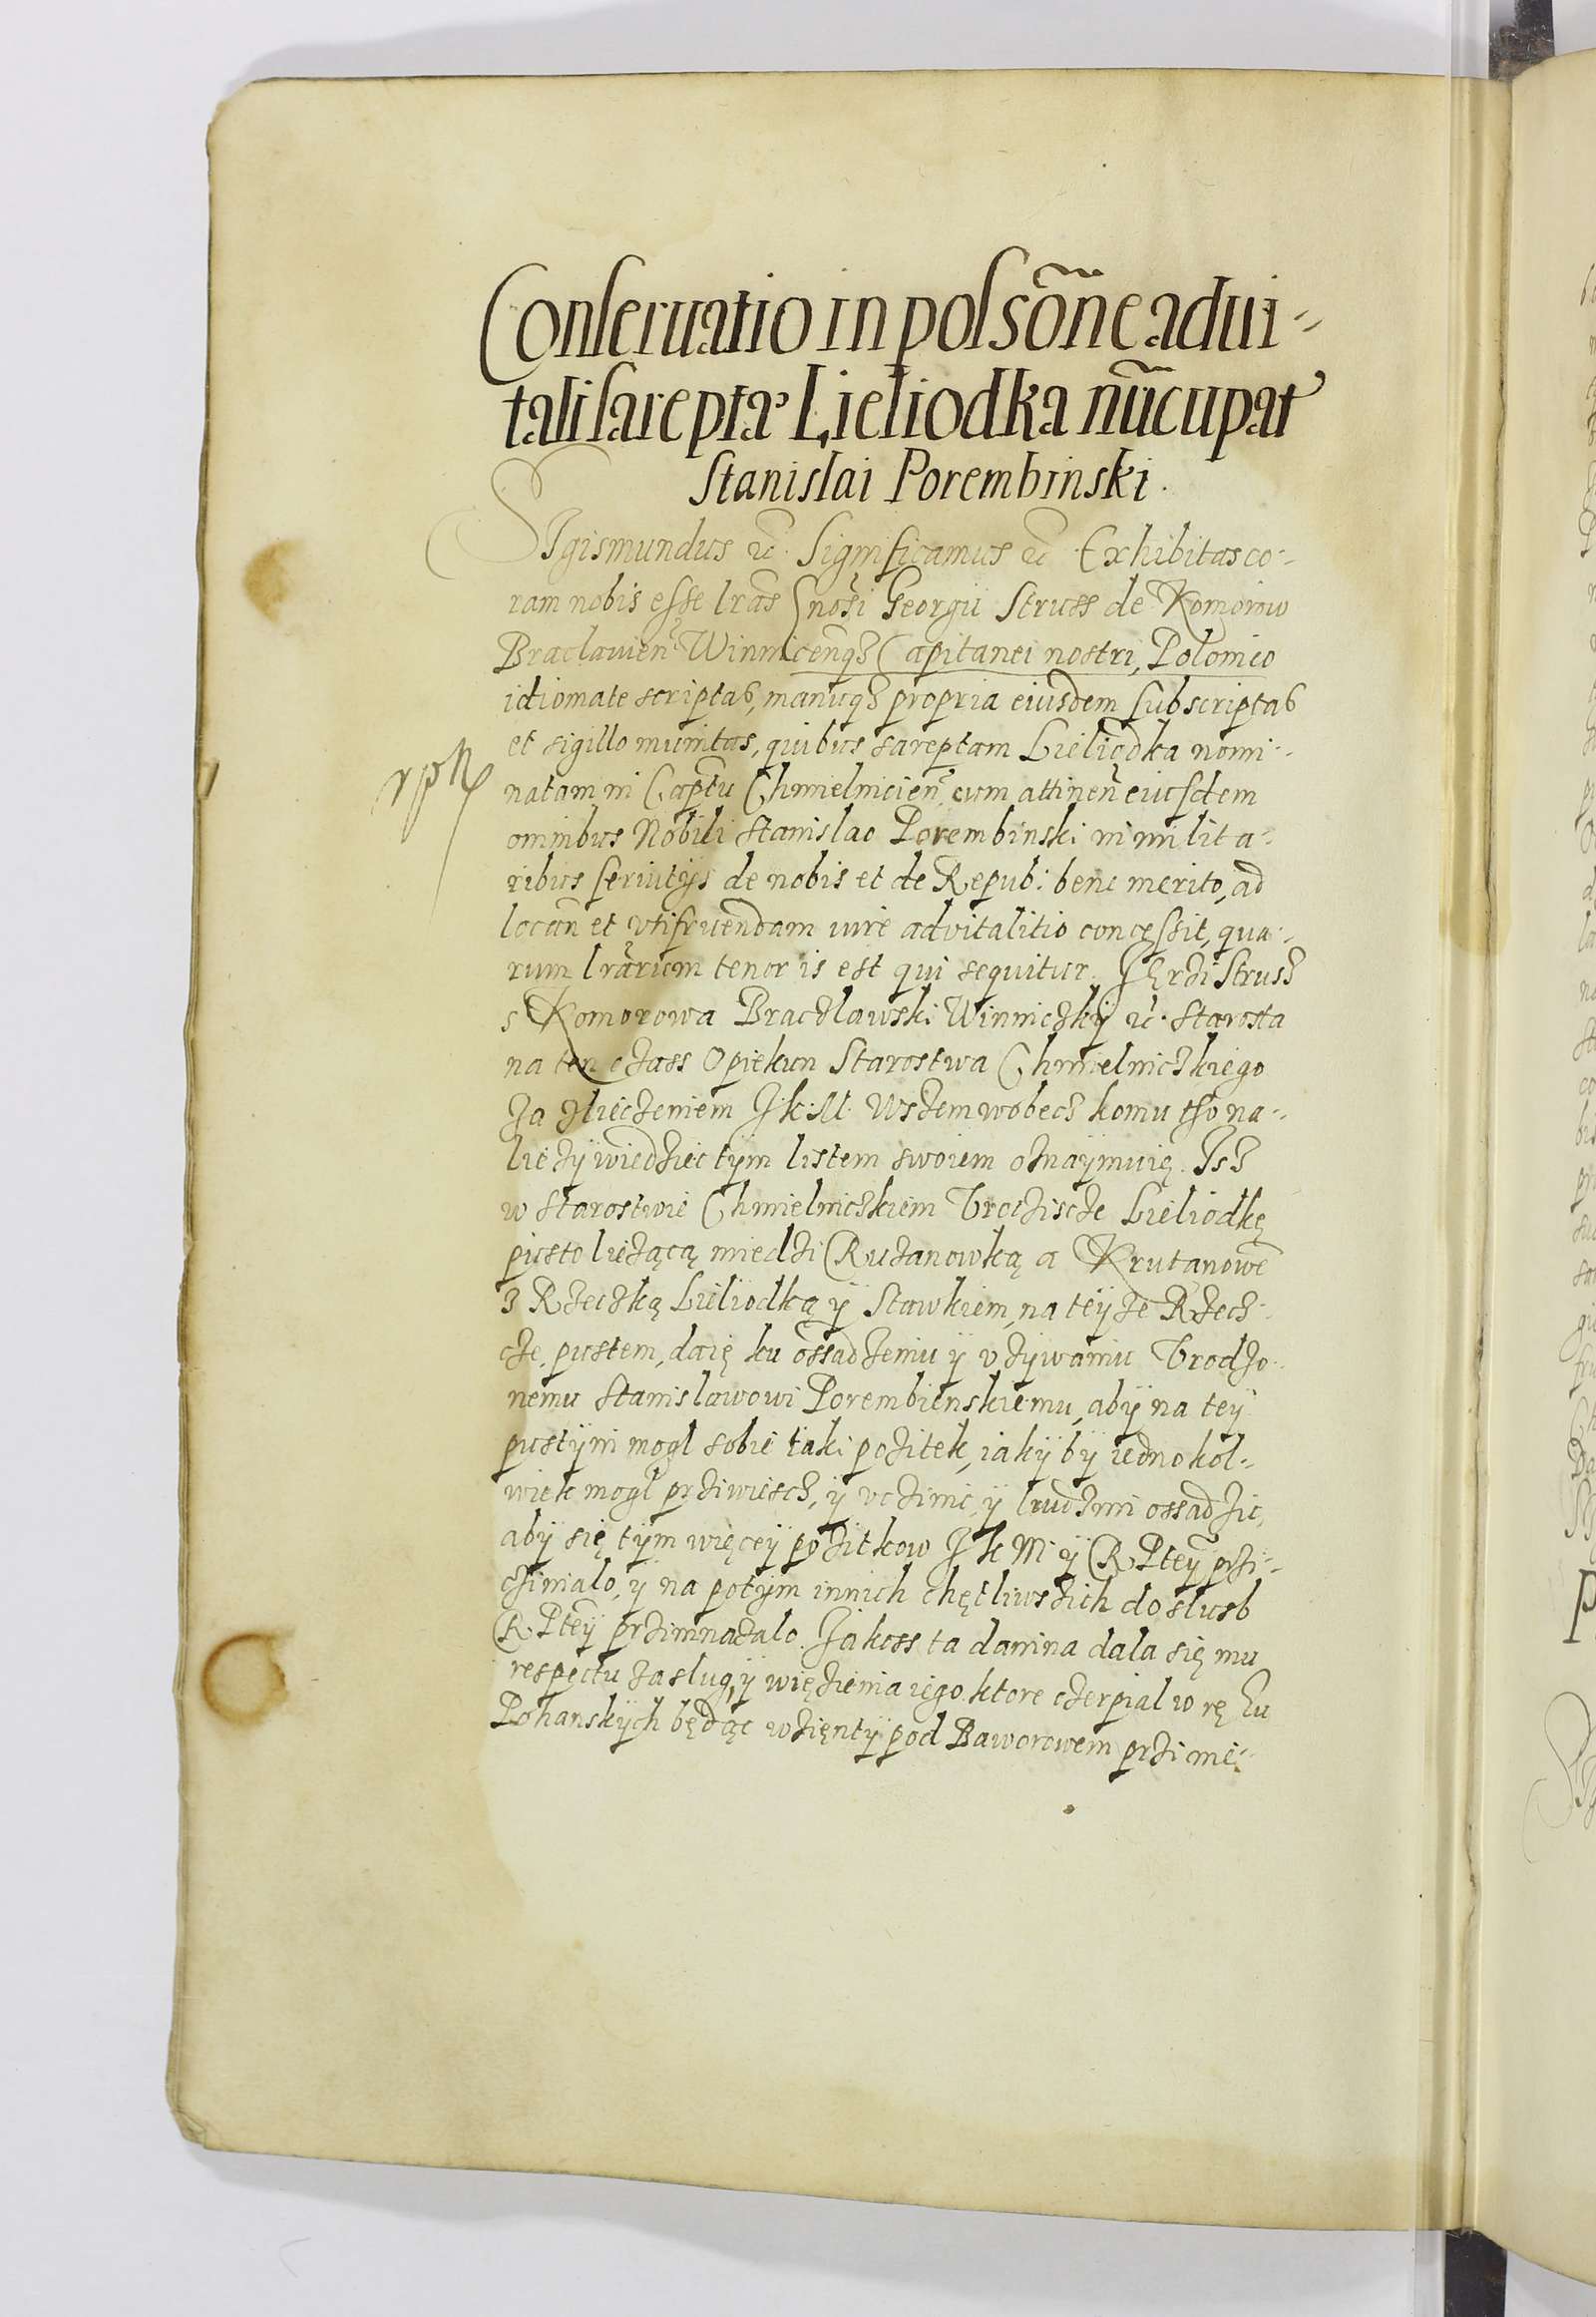 Conseruatio in possõne adui-
tali sareptæ Lieliodka nũcupat
Stanislai Porembinski.
SIgismundus ec. Significamus ec. Exhibitas co-
ram nobis esse lras Gnosi Georgii Struss de Komorow
Braclauien Winnicenqз Capitanei nostri, Polonico
idiomate scriptas, manuqз propria eiusdem subscriptas
et sigillo munitas, quibus sareptam Lieliodka nomi-
natam in Captu Chmielnicien, cum attinen eiusdem
omnibus Nobili Stanislao Porembinski in milita-
ribus seruitijs de nobis et de Repub: bene merito, ad
locan et vtifruendam iure advitalitio concessit, qua-
rum lrarum tenor is est qui sequitur. Jerzi Strusz
s Komorowa Braczlawski Winniczkÿ ec. Starosta
na ten czass Opiekun Starostwa Chmielniczkiego
Za zlieczeniem J.K.M. Wszem wobecz komu tho na-
liezÿ wiedziec tÿm listem swoiem oznaÿmuię. Isz
w Starostwie Chmielniczkiem Vrocziscze Lieliodkę
pusto liezącą miedzi Ruzanowką a Krutanowe
з Rzeczką Lieliodką ÿ Stawkiem, na teÿze Rzecz-
cze, pustem, daię ku ossadzeniu ÿ vzÿwaniu Vrodzo-
nemu Stanislawowi Porembienskiemu, abÿ na teÿ
pustÿni mogl sobie taki pozitek, iakÿ bÿ iednokol-
wiek mogl prziwiescz, ÿ vczinic, ÿ ludzmi ossadzic,
abÿ się tÿm więceÿ pozitkow J K M ÿ R. Pteÿ przi-
czinialo, ÿ na potÿm innich chętliwszich do slusb
R. Pteÿ przimnazalo. Jakoss ta danina dala się mu
respectu zaslug, ÿ więzienia iego. ktore czerpial w ręku
Pohanskÿch będąc wzientÿ pod Baworowem przi mé-